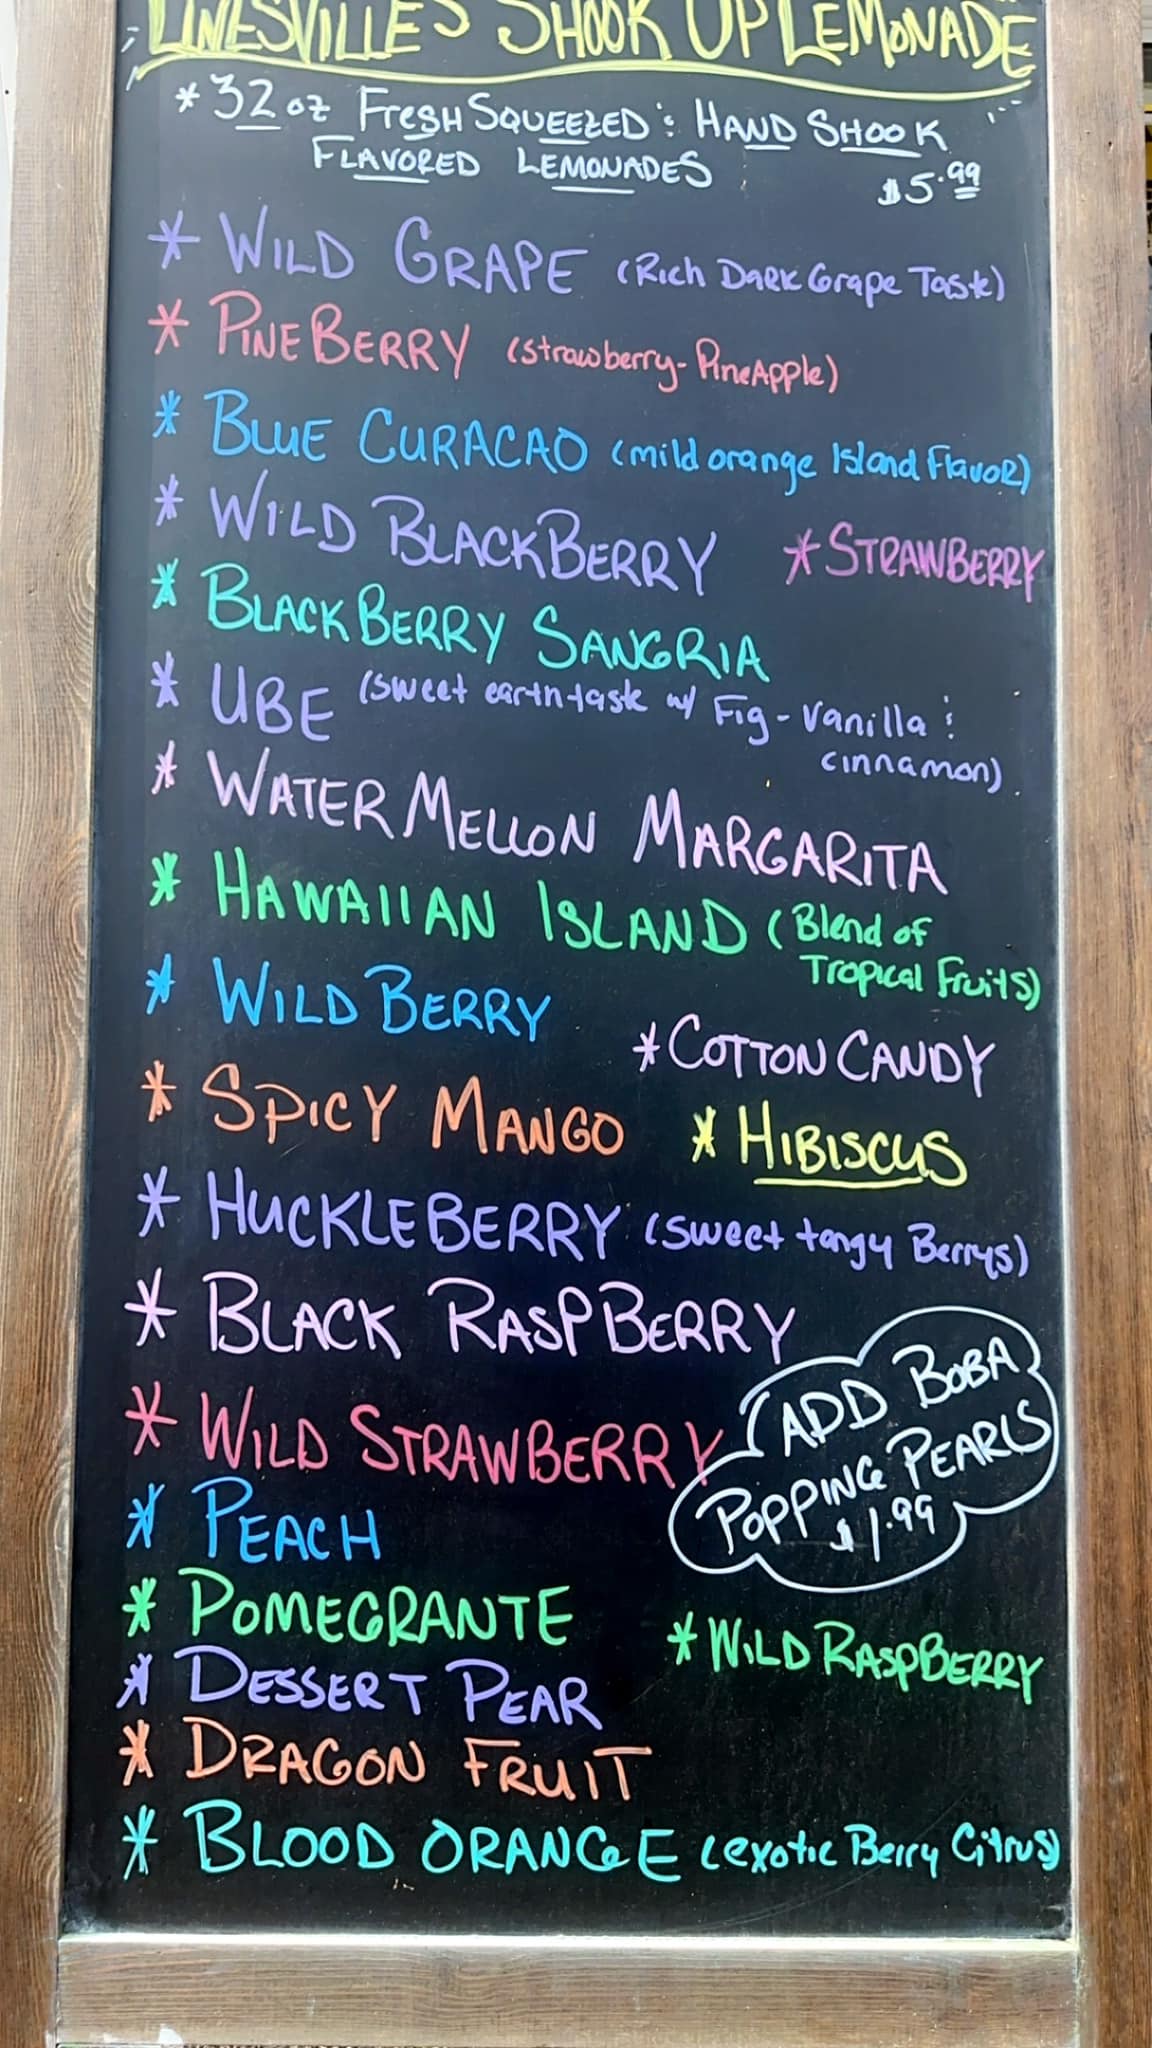 LINESVILLE'S SHOOK UP LEMONADE
* 32 oz FRESH SQUEEZED & HAND SHOOK
FLAVORED LEMONADES
$5.99
* WILD GRAPE (Rich Dark Grape Taste)
* PINEBERRY (strawberry-PineApple)
* BLUE CURACAO (mild orange Island Flavor)
* WILD BLACKBERRY * STRAWBERRY
* BLACKBERRY SANGRIA
* UBE (sweet earth taste w/ Fig-vanilla &
cinnamon)
* WATERMELLON MARGARITA
* HAWAIIAN ISLAND (Blend of
Tropical Fruits)
* WILD BERRY
* COTTON CANDY
* SPICY MANGO * HIBISCUS
* HUCKLEBERRY (sweet tangy Berrys)
* BLACK RASPBERRY
* WILD STRAWBERRY
ADD BOBA
POPPING PEARLS
$1.99
* PEACH
* POMEGRANTE
* WILD RASPBERRY
* DESSERT PEAR
* DRAGON FRUIT
* BLOOD ORANGE (exotic Berry Citrus)